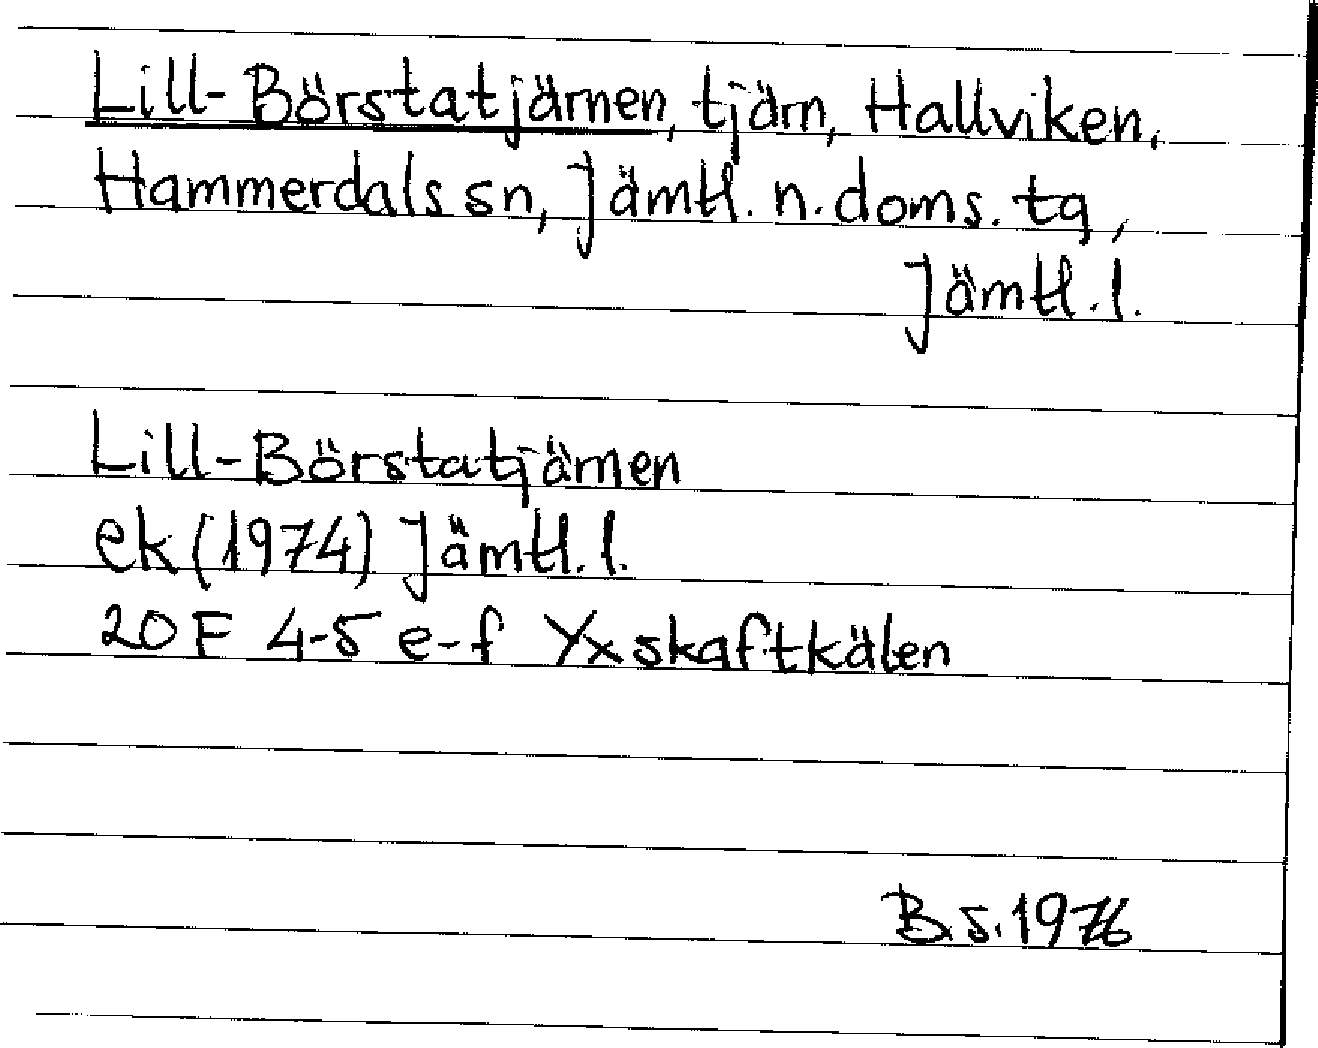 Lill-Börstatjärnen, tjärn, Hallviken,
Hammerdals sn, Jämtl. n. doms. tg,
Jämtl. l.
Lill-Börstatjärnen
ek (1974) Jämtl. l.
20 F 4-5 e-f Yxskaftkälen
B.S. 1976